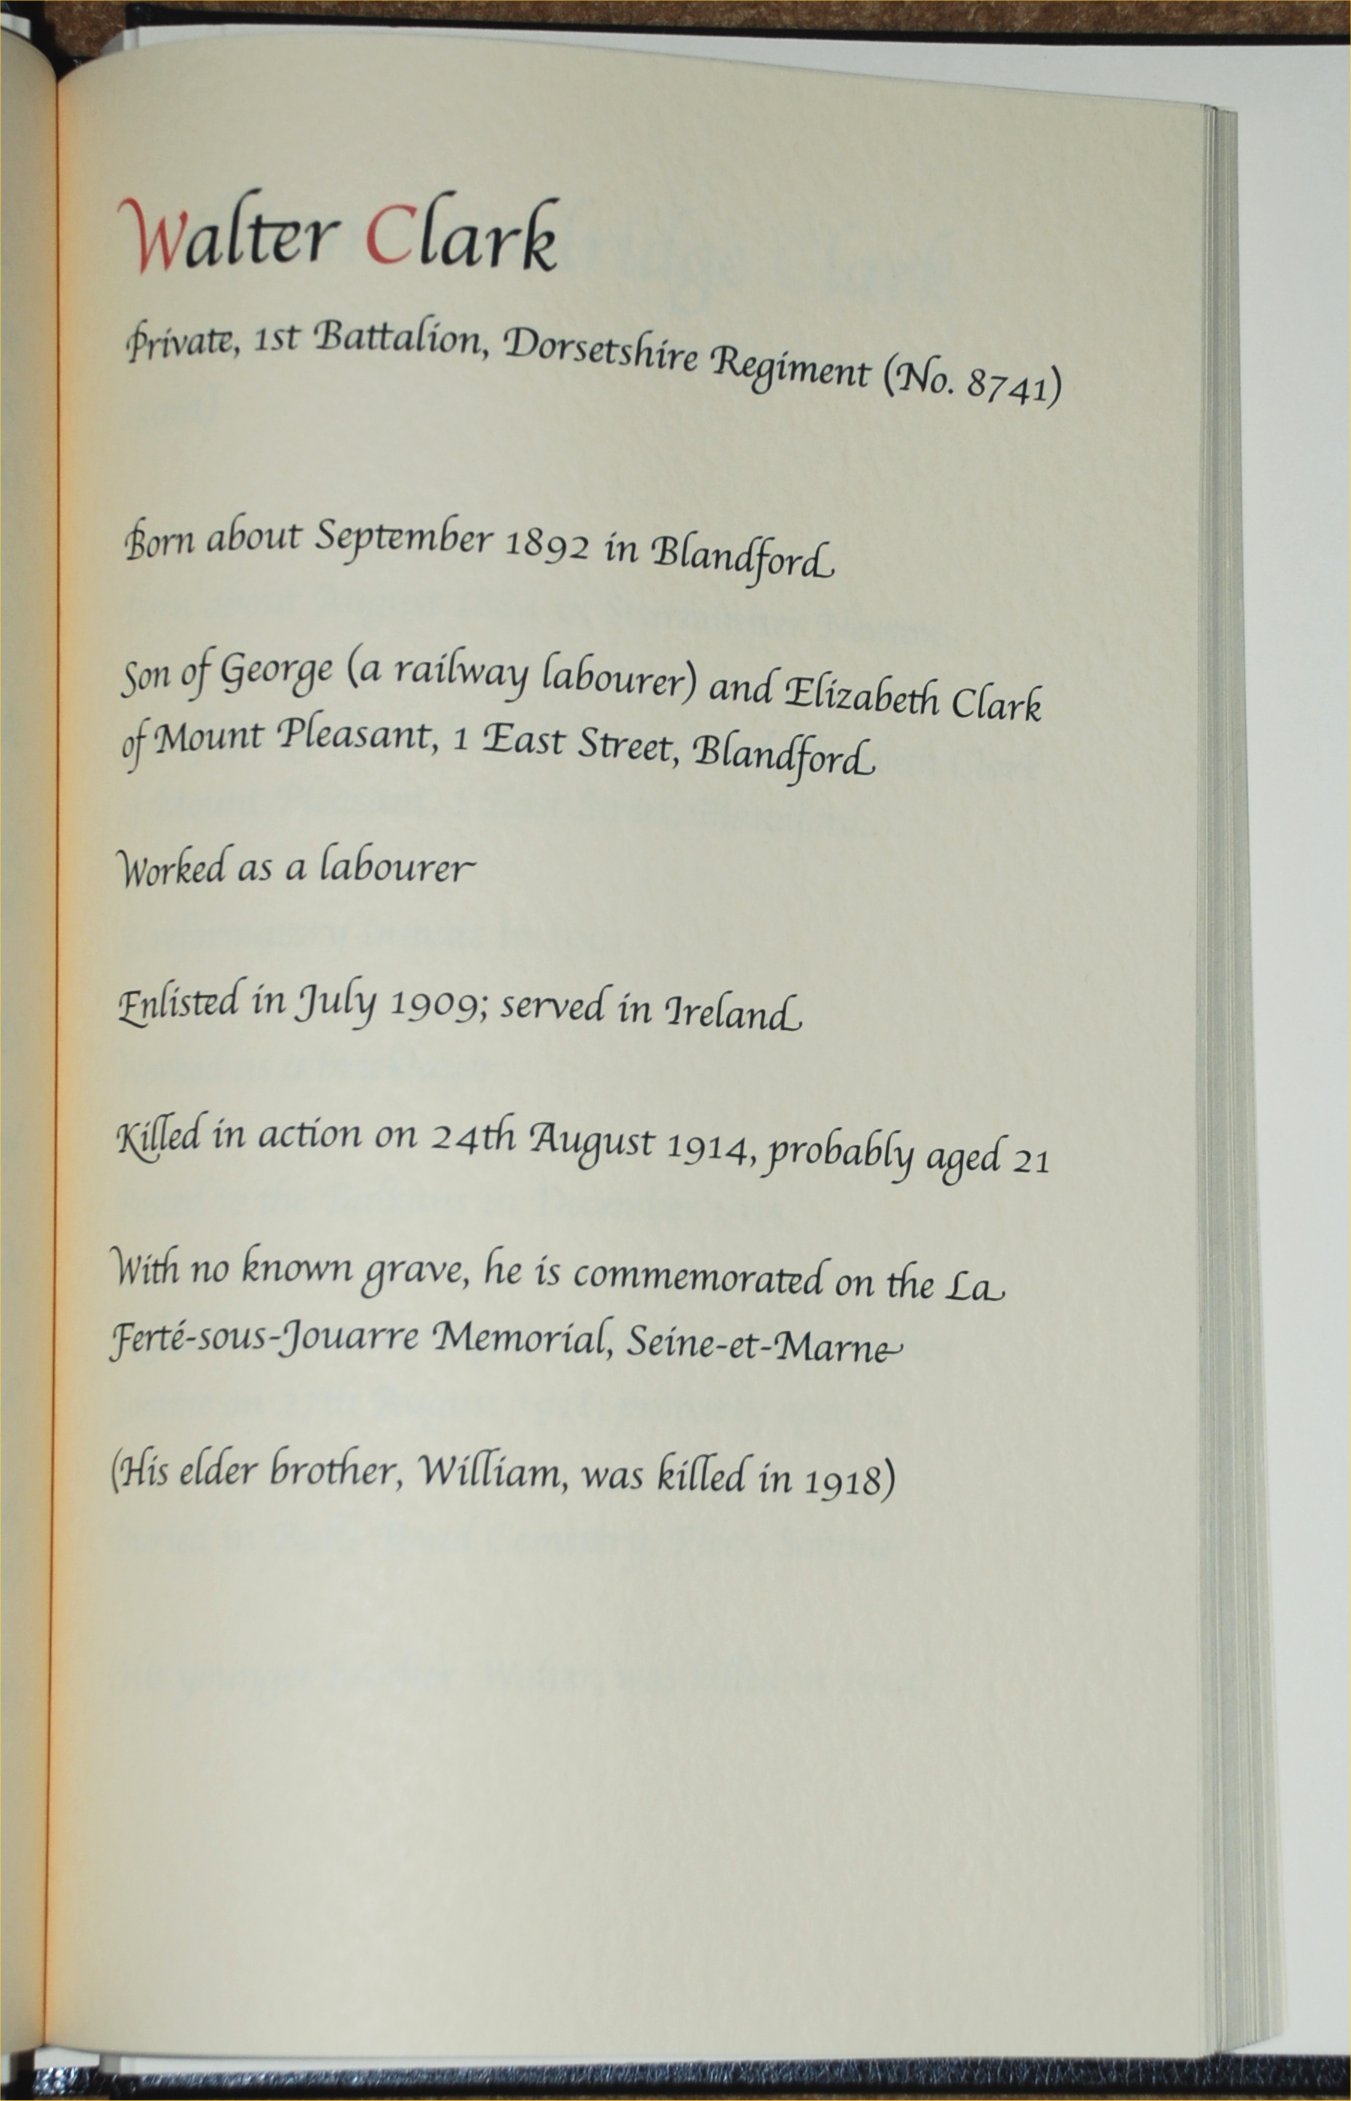 Walter Clark
Private, 1st Battalion, Dorsetshire Regiment (No. 8741)
Born about September 1892 in Blandford
Son of George (a railway labourer) and Elizabeth Clark
of Mount Pleasant, 1 East Street, Blandford
Worked as a labourer
Enlisted in July 1909; served in Ireland
Killed in action on 24th August 1914, probably aged 21
With no known grave, he is commemorated on the La
Ferté-sous-Jouarre Memorial, Seine-et-Marne
(His elder brother, William, was killed in 1918)